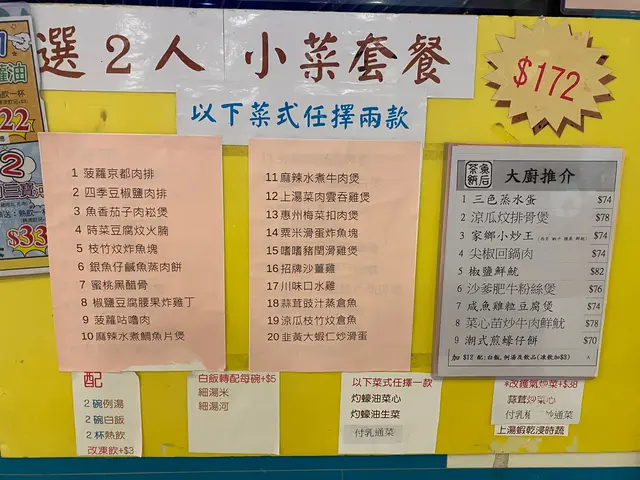 選2人 小菜套餐
$172
以下菜式任擇兩款
1 菠蘿京都肉排
2 四季豆椒鹽肉排
3 魚香茄子肉崧煲
4 時菜豆腐炆火腩
5 枝竹炆炸魚塊
6 銀魚仔鹹魚蒸肉餅
7 蜜桃黑醋骨
8 椒鹽豆腐腰果炸雞丁
9 菠蘿咕嚕肉
10 麻辣水煮鯛魚片煲
11 麻辣水煮牛肉煲
12 上湯菜肉雲吞雞煲
13 惠州梅菜扣肉煲
14 粟米滑蛋炸魚塊
15 嗜嗜豬閏滑雞煲
16 招牌沙薑雞
17 川味口水雞
18 蒜茸豉汁蒸倉魚
19 涼瓜枝竹炆倉魚
20 韭黃大蝦仁炒滑蛋
大廚推介
1 三色蒸水蛋 $74
2 涼瓜炆排骨煲 $78
3 家鄉小炒王 $74
4 尖椒回鍋肉 $74
5 椒鹽鮮魷 $82
6 沙爹肥牛粉絲煲 $76
7 咸魚雞粒豆腐煲 $74
8 菜心苗炒牛肉鮮魷 $78
9 潮式煎蠔仔餅 $70
加 $12 配:白飯,例湯及飲品(凍飲加$3)
配
2 碗例湯
2 碗白飯
2 杯熱飲
改凍飲+$3
白飯轉配每碗+$5
細湯米
細湯河
以下菜式任擇一款
灼蠔油菜心
灼蠔油生菜
付乳通菜
*改鑊氣炒菜+$38
蒜茸炒菜心
付乳椒絲通菜
上湯蝦乾浸時蔬
$33